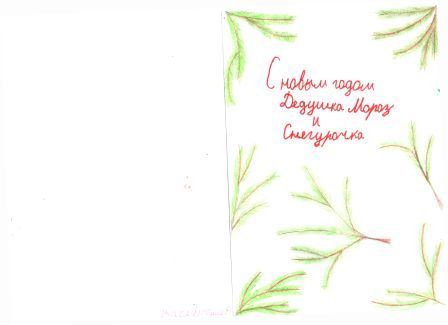 С новым годом
Дедушка Мороз
и
Снегурочка